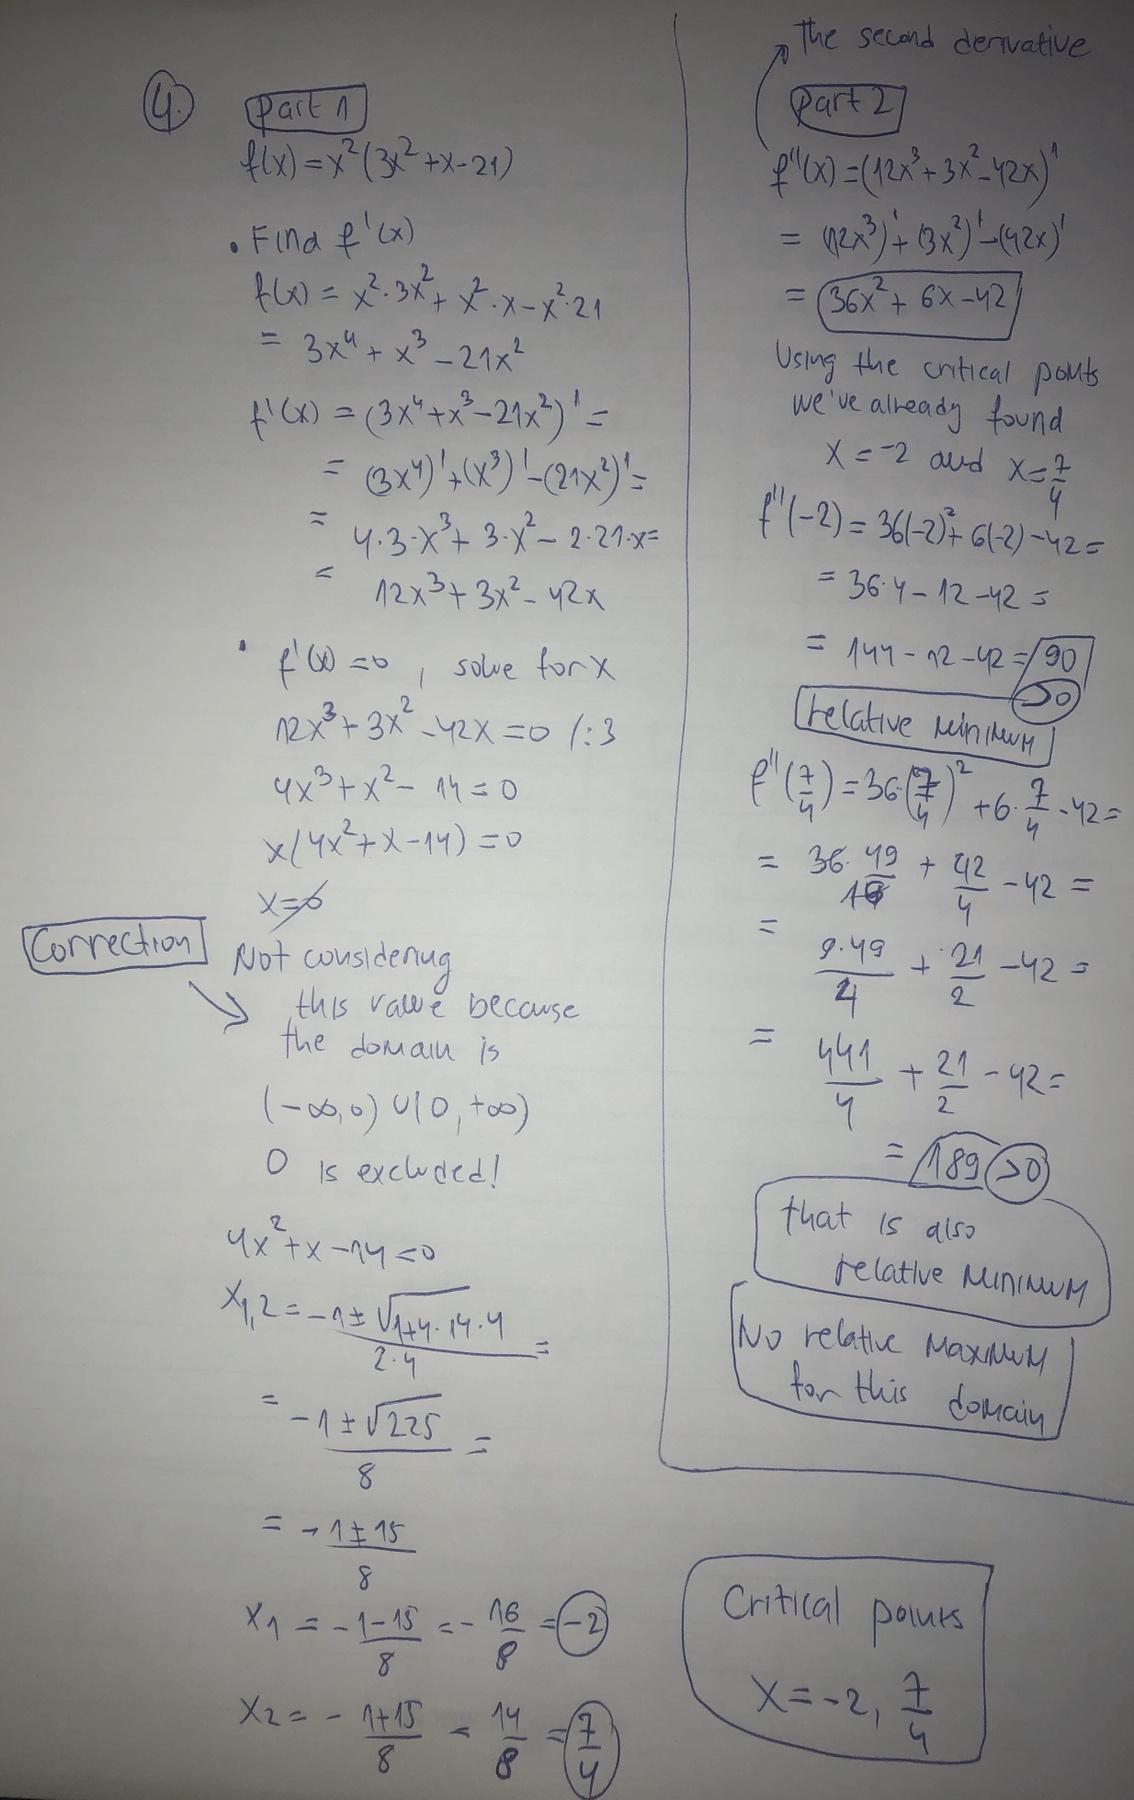 4.
Part 1
f(x) = x²(3x² + x - 21)
• Find f'(x)
f(x) = x² · 3x² + x² · x - x² · 21
= 3x⁴ + x³ - 21x²
f'(x) = (3x⁴ + x³ - 21x²)' =
= (3x⁴)' + (x³)' - (21x²)' =
= 4·3·x³ + 3·x² - 2·21·x =
= 12x³ + 3x² - 42x
• f'(x) = 0, solve for x
12x³ + 3x² - 42x = 0 /:3
4x³ + x² - 14 = 0
x(4x² + x - 14) = 0
x=0
Correction
Not considering
this value because
the domain is
(-∞,0) ∪ (0, +∞)
0 is excluded!
4x² + x - 14 = 0
x1,2 = -1 ± √1+4·14·4 / 2·4 =
= -1 ± √225 / 8 =
= -1 ± 15 / 8
x1 = -1-15 / 8 = -16/8 = -2
x2 = -1+15 / 8 = 14/8 = 7/4
The second derivative
Part 2
f''(x) = (12x³ + 3x² - 42x)'
= (12x³)' + (3x²)' - (42x)'
= 36x² + 6x - 42
Using the critical points
we've already found
x = -2 and x = 7/4
f''(-2) = 36(-2)² + 6(-2) - 42 =
= 36·4 - 12 - 42 =
= 144 - 12 - 42 = 90
>0
relative minimum
f''(7/4) = 36·(7/4)² + 6·7/4 - 42 =
= 36·49/16 + 42/4 - 42 =
= 9·49/4 + 21/2 - 42 =
= 441/4 + 21/2 - 42 =
= 189 >0
that is also
relative minimum
No relative maximum
for this domain
Critical points
x = -2, 7/4